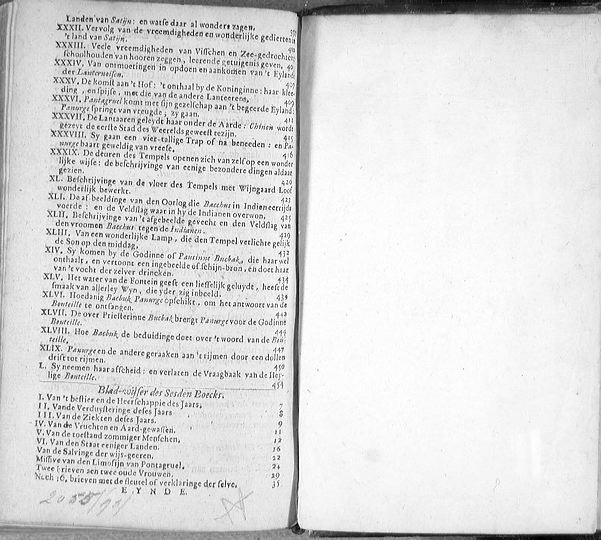 Landen van Satijn: en watse daar al wonders zagen. 397
XXXII. Vervolg van de vreemdigheden en wonderlijke gedierten in
't land van Satijn.
XXXIII. Veele vreemdigheden van Visschen en Zee-gedrochten;
schoolhouden van hooren zeggen, leerende getuigenis geven.
XXXIV. Van ontmoetingen in opdoen en aankomen van 't Eyland
der Lanternoisen. 407
XXXV. De komst aan 't Hof: 't onthaal by de Koninginne: haar klee-
ding, en spijse, met die van de andere Lanteerens. 409
XXXVI. Pantagruel komt met sijn gezelschap aan 't begeerde Eyland:
Panurge springt van vreugde, zy gaan. 411
XXXVII. De Lantaaren geleydt haar onder de Aarde: Chinon wordt
gezeyt de eerste Stad des Weerelds geweest te zijn. 415
XXXVIII. Sy gaan een vier-tallige Trap of na beneeden: en Pa-
nurge baart geweldig van vreese. 416
XXXIX. De deuren des Tempels openen zich van zelf op een wonder
lijke wijse: de beschrijvinge van eenige bezondere dingen aldaar
gezien. 420
XL. Beschrijvinge van de vloer des Tempels met Wijngaard Loof
wonderlijk bewerkt. 423
XLI. De af beeldinge van den Oorlog die Bacchus in Indien eertijds
voerde: en de Veldslag waar in hy de Indianen overwon. 425
XLII. Beschrijvinge van 't afgebeelde gevecht en den Veldslag van
den vroomen Bacchus tegen de Indianen. 429
XLIII. Van een wonderlijke Lamp, die den Tempel verlichte gelijk
de Son op den middag. 432
XIV. Sy komen by de Godinne of Pansinne Bucbak, die haar wel
onthaalt, en vertoont een ingebeelde of schijn-bron, en doet haar
van 't vocht der zelver drincken. 434
XLV. Het water van de Fontein geeft een lieffelijk geluydt, heeft de
smaak van allerley Wijn, die yder zig inbeeld. 439
XLVI. Hoedanig Bacbuk Panurge opschikt, om het antwoort van de
Bouteille te ontfangen. 442
XLVII. De over Priesterinne Bucbak brengt Panurge voor de Godinne
Bouteille. 444
XLVIII. Hoe Bacbuk de beduidinge doet over 't woord van de Bou-
teille. 447
XLIX. Panurge en de andere geraaken aan 't rijmen door een dollen
drift tot rijmen. 450
L. Sy neemen haar afscheid: en verlaten de Vraagbaak van de Hey-
lige Bouteille. 454
Blad-wijser des Sesden Boeckx.
I. Van 't bestier en de Heerschappie des Jaars. 7
II. Van de Verduysteringe deses Jaars 8
III. Van de Ziekten deses Jaars. 9
IV. Van de Vruchten en Aard-gewassen. 11
V. Van de toestand zommiger Menschen. 12
VI. Van den Staat eeniger Landen. 16
Van de Salvinge der wijs-geeren. 22
Missive van den Limosijn van Pontagruel. 24
Twee brieven aen twee oude Vrouwen. 29
Noch 16. brieven met de sleutel of verklaringe der selve. 35
EYNDE.